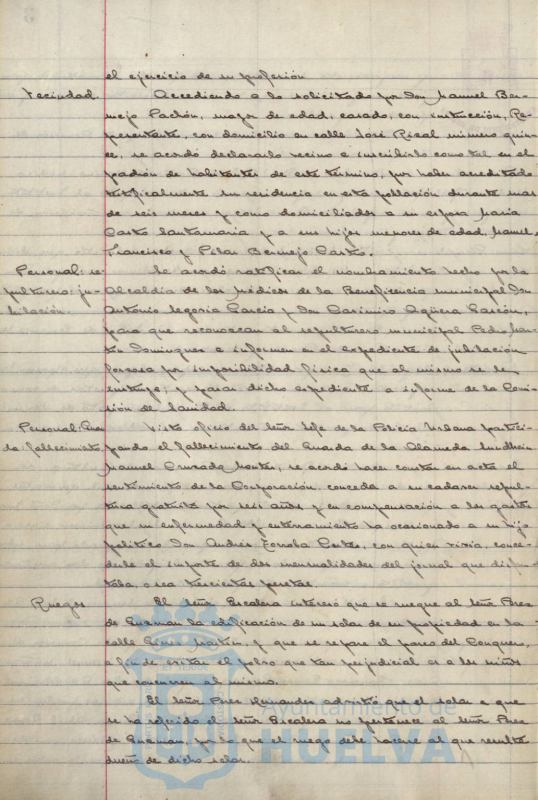 el ejercicio de su profesión
Vecindad. Accediendo a lo solicitado por Don Manuel Ber-
mejo Pachón, mayor de edad, casado, con instrucción, Re-
presentante, con domicilio en calle José Rizal número quin-
ce, se acordó declararlo vecino e inscribirlo como tal en el
padrón de habitantes de este término, por haber acreditado
testificalmente su residencia en esta población durante mas
de seis meses y como domiciliados a su esposa María
Castro Santamaria y a sus hijos menores de edad, Manuel,
Francisco y Pilar Bermejo Castro.
Personal: se- Se acordó ratificar el nombramiento hecho por la
pulturero: ju- Alcaldía de los Médicos de la Beneficencia municipal Don
bilación. Antonio Segovia García y Don Casimiro Agüera Garcón,
para que reconozcan al sepulturero municipal Pedro Mar-
tín Domínguez e informen en el expediente de jubilación
forzosa por imposibilidad física que al mismo se le
instruye, y pasar dicho expediente a informe de la Comi-
sión de Sanidad.
Personal: Guar- Visto oficio del Señor Jefe de la Policía Urbana partici-
da fallecimiento. pando el fallecimiento del Guarda de la Alameda Sundheim
Manuel Cruzado Montes, se acordó hacer constar en acta el
sentimiento de la Corporación, conceda a su cadaver sepul-
tura gratuita por seis años y en compensación a los gastos
que su enfermedad y enterramiento ha ocasionado a su hijo
político Don Andrés Cortes, con quien vivía, conce-
derle el importe de dos mensualidades del jornal que disfru-
taba, o sea trescientas pesetas.
Ruegos El Señor Escalera interesó que se ruegue al Señor Perez
de Guzman la edificación de un solar de su propiedad en la
calle Gines Martín, y que se repare el paseo del Conquero,
a fin de evitar el polvo que tan perjudicial es a los niños
que concurren al mismo.
El Señor Perez Hernandez advirtió que el solar a que
se ha referido el Señor Escalera no pertenece al Señor Perez
de Guzman, por lo que el ruego debe hacerse al que resulte
dueño de dicho solar.
Ayuntamiento de
HUELVA